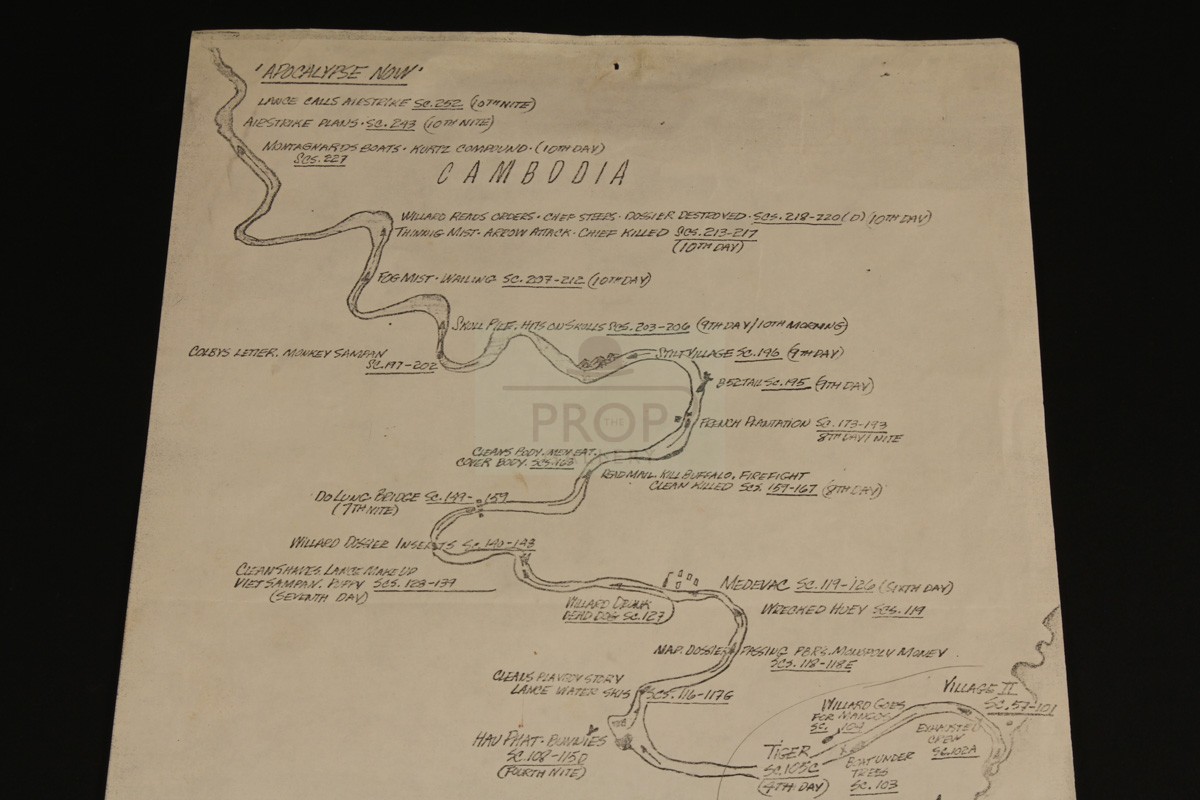 "APOCALYPSE NOW"
LANCE CALLS AIRSTRIKE SC. 252 (10TH NITE)
AIRSTRIKE PLANS · SC. 243 (10TH NITE)
MONTAGNARDS BOATS · KURTZ COMPOUND · (10TH DAY)
SCS. 227
CAMBODIA
WILLARD READS ORDERS · CHEF STEERS · DOSSIER DESTROYED · SCS. 218-220 (D) (10TH DAY)
THINNIG MIST · ARROW ATTACK · CHIEF KILLED SCS. 213-217
(10TH DAY)
FOG MIST · WAILING SC. 207-212 (10TH DAY)
SKULL PILE. HITS ON SKULLS SCS. 203-206 (9TH DAY/10TH MORNING)
COLBYS LETTER. MONKEY SAMPAN
SC. 197-202
STILT VILLAGE SC. 196 (9TH DAY)
SC. 195 (9TH DAY)
FRENCH PLANTATION SC. 173-193
8TH DAY/NITE
PROP
THE
CLEANS BODY. MEN EAT.
COVER BODY. SCS.
READ MAIL. KILL BUFFALO. FIREFIGHT
CLEAN KILLED SCS. 159-167 (8TH DAY)
DO LUNG BRIDGE SC. 149-159
(7TH NITE)
WILLARD DOSSIER INSERTS SC. 140-143
CLEAN SHAVES. LANCE MAKE UP
VIET SAMPAN. PUPPY SCS. 128-139
(SEVENTH DAY)
MEDEVAC SC. 119-126 (SIXTH DAY)
WILLARD DRUNK
DEAD DOG SC. 127
WRECKED HUEY SCS. 119
MAP. DOSSIER PASSING PBRS. MONOPOLY MONEY
SCS. 118-118E
CLEANS PLAYBOY STORY
LANCE WATER SKIS SCS. 116-117G
VILLAGE II
SC. 57-101
WILLARD GOES
FOR MANGOS
SC. 104
EXHAUSTED
CREW
SC. 102A
HAU PHAT · BUNNIES
SC. 108-115D
(FOURTH NITE)
TIGER
SC. 105C
(4TH DAY)
BOAT UNDER
TREES
SC. 103